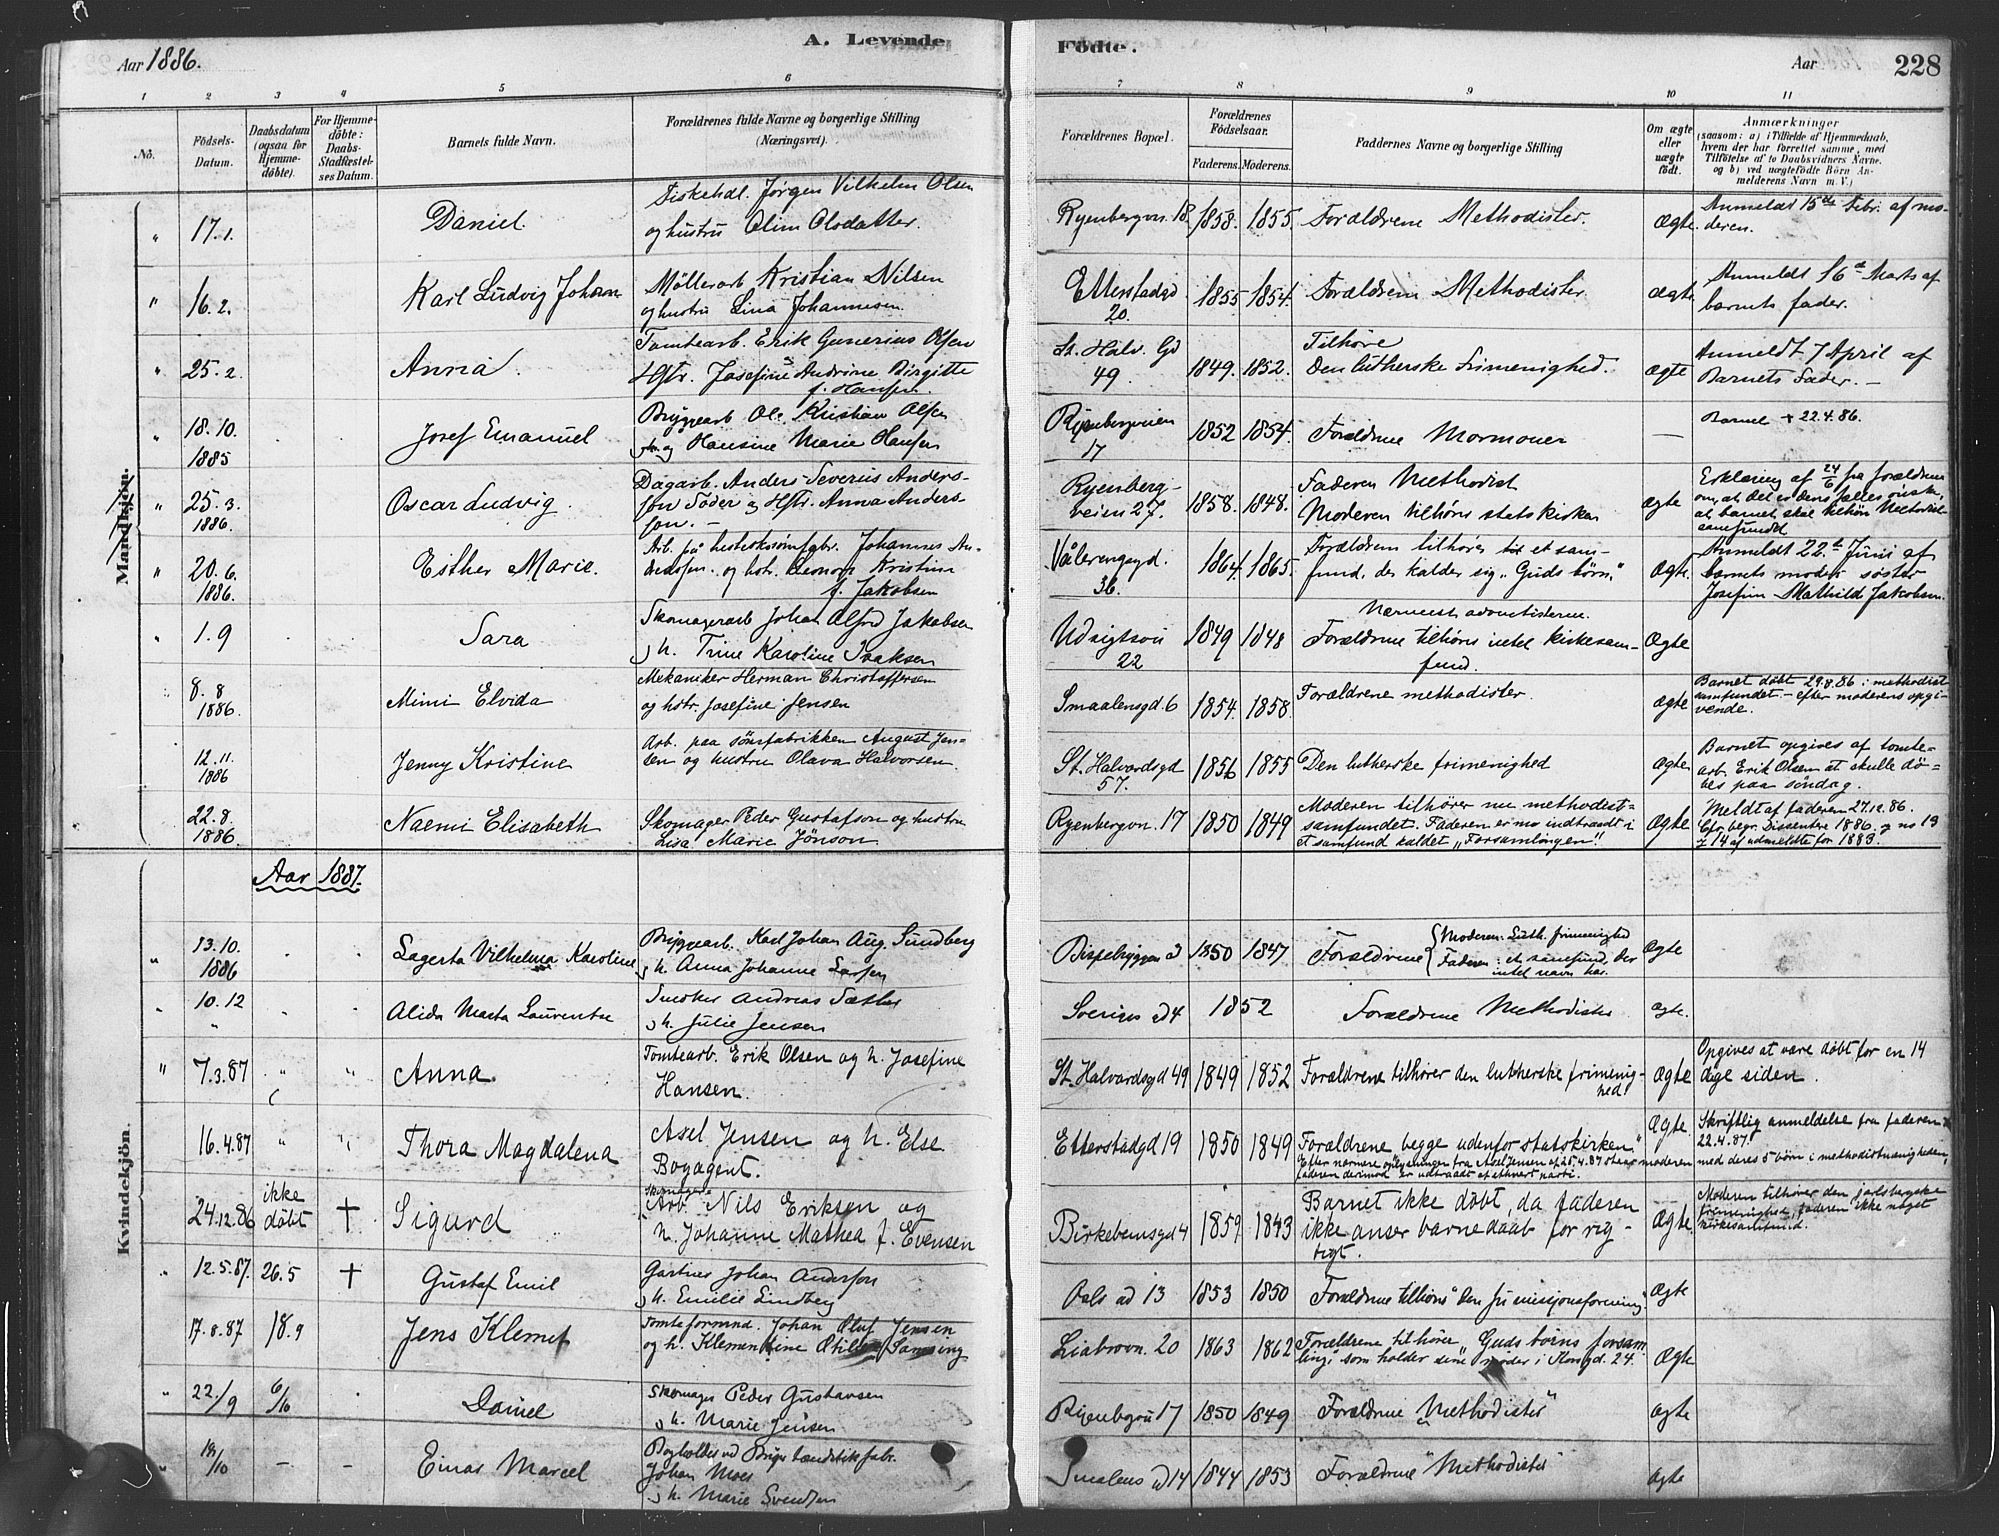 Aar 1886.
A. Levende
Födte.
Aar
228
1 2 3 4 5 6 7 8 9 10 11
No.
Födsels-
Datum.
Daabsdatum
(ogsaa for
Hjemme-
döbte).
For Hjemme-
döbte:
Daabs-
Stadfæstel-
ses Datum.
Barnets fulde Navn.
Forældrenes fulde Navne og borgerlige Stilling
(Næringsvei).
Forældrenes Bopæl.
Forældrenes
Födselsaar.
Faderens. Moderens.
Faddernes Navne og borgerlige Stilling
Om ægte
eller
uægte
födt.
Anmærkninger
(saasom: a) i Tilfælde af Hjemmedaab,
hvem der har forrettet samme, med
Tilföielse af to Daabsvidners Navne.
og b) ved uægtefödte Börn An-
melderens Navn m. V.)
Mandkjön.
" 17.1. Daniel.
Fiskehdl. Jørgen Vilhelm Olsen
og hustru Olim Olsdatter.
Ryenbergvn. 18. 1858. 1855. Forældrene Methodister. Ægte.
Anmeldt 15de Febr. af mo-
deren.
" 16.2. Karl Ludvig Johan
Møllerarb Kristian Nilsen
og hustru Lina Johannesen.
Etterstadgd
20.
1855 1854. Forældrene Methodister. Ægte
Anmeldt 16d Marts af
barnets fader.
" 25.2. Anna.
Tomtearb. Erik Gunerius Olsen
Hstr. Josefine Andrine Birgitte
f. Hansen.
St. Halv. Gd
49
1849. 1852.
Tilhøre
Den lutherske Frimenighed. Ægte
Anmeldt 7 April af
Barnets Fader. —
" 18.10.
1885
Josef Emanuel
Bryggearb Ole Kristian Olsen
og Hansine Marie Hansen
Ryenbergveien
17
1852 1854. Forældrene Mormoner —
Barnet + 22.4.86.
" 25.3.
1886.
Oscar Ludvig.
Dagarb. Anders Severius Anders-
son Söder og Hstr. Anna Anders-
son. —
Ryenberg-
veien 27.
1858. 1848.
Faderen Methodist
Moderen tilhörer statskirken Ægte
Erklæring af 24/6 fra forældrene
om, at det er deres fælles ønske,
at barnet skal tilhøre Methodist-
samfundet
" 20.6.
1886.
Esther Marie.
Arb. på hesteskosømfabr. Johannes An-
dersen. og hstr. Leonora Kristine
f. Jakobsen
Vålerengsgd.
36.
1864. 1865.
Forældrene tilhører et sam-
fund, der kalder sig „Guds børn." Ægte.
Anmeldt 22de Juni af
barnets moders søster
Josefine Mathilde Jakobsen.
" 1.9 Sara
Skomagerarb Johan Alfred Jakobsen
h. Trine Karoline Isaksen
Udsigtsvei
22
1849 1848
Nærmest adventisterne.
Forældrene tilhører intet kirkesam-
fund. Ægte
8.8
1886.
Mimi Elvida
Mekaniker Herman Christoffersen
og hstr. Josefine Jensen
Smaalensgd. 6 1854. 1858. Forældrene methodister. Ægte
Barnet döbt 29.8.86 i methodist
samfundet. — efter moderens opgi-
vende.
12.11.
1886
Jenny Kristine
Arb. paa sömfabrikken August Jen-
sen og hustru Olava Halvorsen.
St. Halvardsgd
57.
1856 1855 Den lutherske frimenighed Ægte
Barnet opgives af tomte-
arb. Erik Olsen at skulle dö-
bes paa söndag.
22.8.
1886.
Naemi Elisabeth
Skomager Peder Gustafson og hustru
Lisa Marie Jönson
Ryenbergvn. 17 1850 1849
Moderen tilhører nu methodist-
samfundet. Faderen er nu indtraadt i
et samfund kaldet „Forsamlingen". Ægte
Meldt af faderen 27.12.86.
Cfr. begr. Dissentere 1886. og no 13
& 14 af udmeldte for 1883.
Aar 1887.
Kvindekjön.
" 13.10.
1886
Lagerta Vilhelma Karoline
Bryggearb. Karl Johan Aug. Sundberg
h. Anna Johanne Larsen
Bispebryggen 3 1850 1847
Forældrene { Moderen: Luth. frimenighed
Faderen: et samfund, der
intet navn har. Ægte
" 10.12
"
Alida Marta Laurentse
Snedker Andreas Sæther
h. Julie Jensen
Sverigesgd 4 1852 Forældrene Methodister Ægte.
" 7.3.87 " " Anna
Tomtearb. Erik Olsen og h. Josefine
Hansen.
St. Halvardsgd 49 1849 1852
Forældrene tilhører den lutherske frimenig-
hed. Ægte
Opgives at være döbt for en 14
dage siden.
16.4.87 " " Thora Magdalena
Axel Jensen og h. Else
Bogagent.
Etterstadgd 19 1850 1849
Forældrene begge udenfor statskirken."
Efter nærmere oplysninger fra Axel Jensen af 25.4.87 staar moderen med deres 5 børn i methodistmenigheden,
faderen derimod er udtraadt af ethvert parti. Ægte.
Skriftlig anmeldelse fra faderen
22.4.87.
24.12.86 ikke
döbt † Sigurd
Skomager
Arb. Nils Eriksen og
h. Johanne Mathea f. Evensen
Birkebeinsgd 4 1859 1843
Barnet ikke döbt, da faderen
ikke anser barnedaab for rig-
tigt. Ægte.
Moderen tilhører den jarlsbergske
frimenighed, faderen ikke noget
kirkesamfund.
" 12.5.87. 26.5 † Gustaf Emil
Gartner Johan Anderson
h. Emilie Lindberg
Oslogd 13 1853 1850 Forældrene tilhöre "Den fri missionsforening" Ægte
17.8.87 18.9 Jens Klemet
Tomteformnd. Johan Oluf Jensen
og h. Klementine Otilde Samsing
Liabrovn. 20 1863 1862
Forældrene tilhører „Guds børns forsam-
ling" som holder sine møder i Kongd. 24. Ægte
" 22./9 6/10 Daniel
Skomager Peder Gustavsen
h. Marie Jensen
Ryenbgvei 17 1850 1849 Forældrene „Methodister" Ægte
" 18/10 — — Einar Marcel
Bogholder ved Bryns tændstikfabr.
Johan Moes
h. Marie Svendsen
Smalensgd 14 1844 1853 Forældrene "Methodister" Ægte